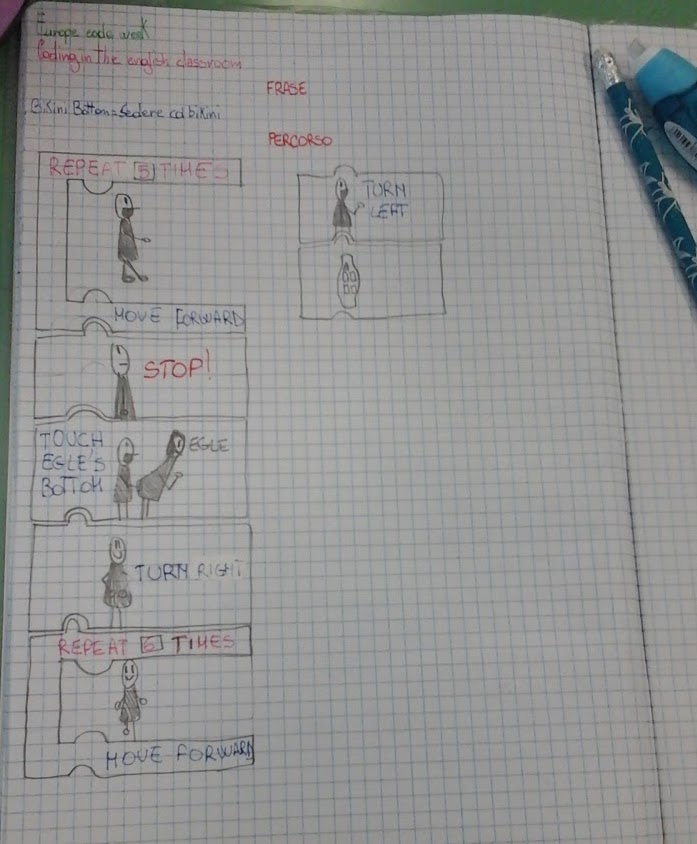 Europe code week
Coding in the english classroom
FRASE
Bikini Bottom = Sedere col bikini
PERCORSO
REPEAT 5 TIMES
MOVE FORWARD
STOP!
TOUCH
EGLE'S
BOTTOM
EGLE
TURN RIGHT
REPEAT 5 TIMES
MOVE FORWARD
TURN
LEFT